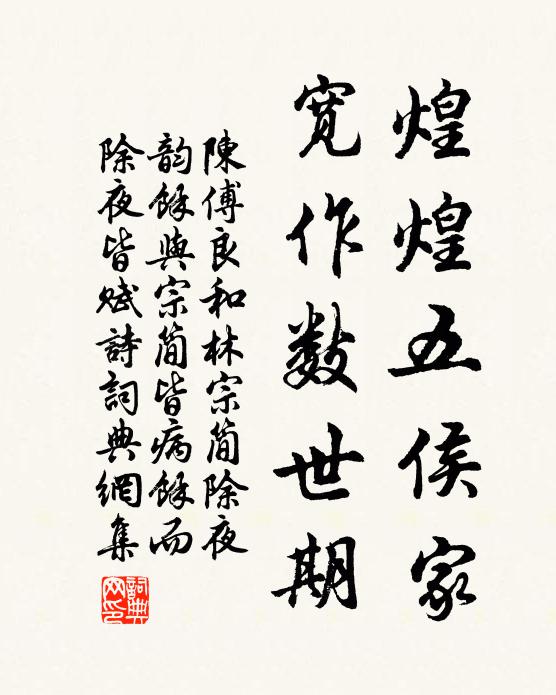 煌煌五侯家
寬作数世期
陳傅良和林宗簡除夜
韵餘與宗簡皆病餘而
除夜皆賦詩詞典網集
詞典
网印